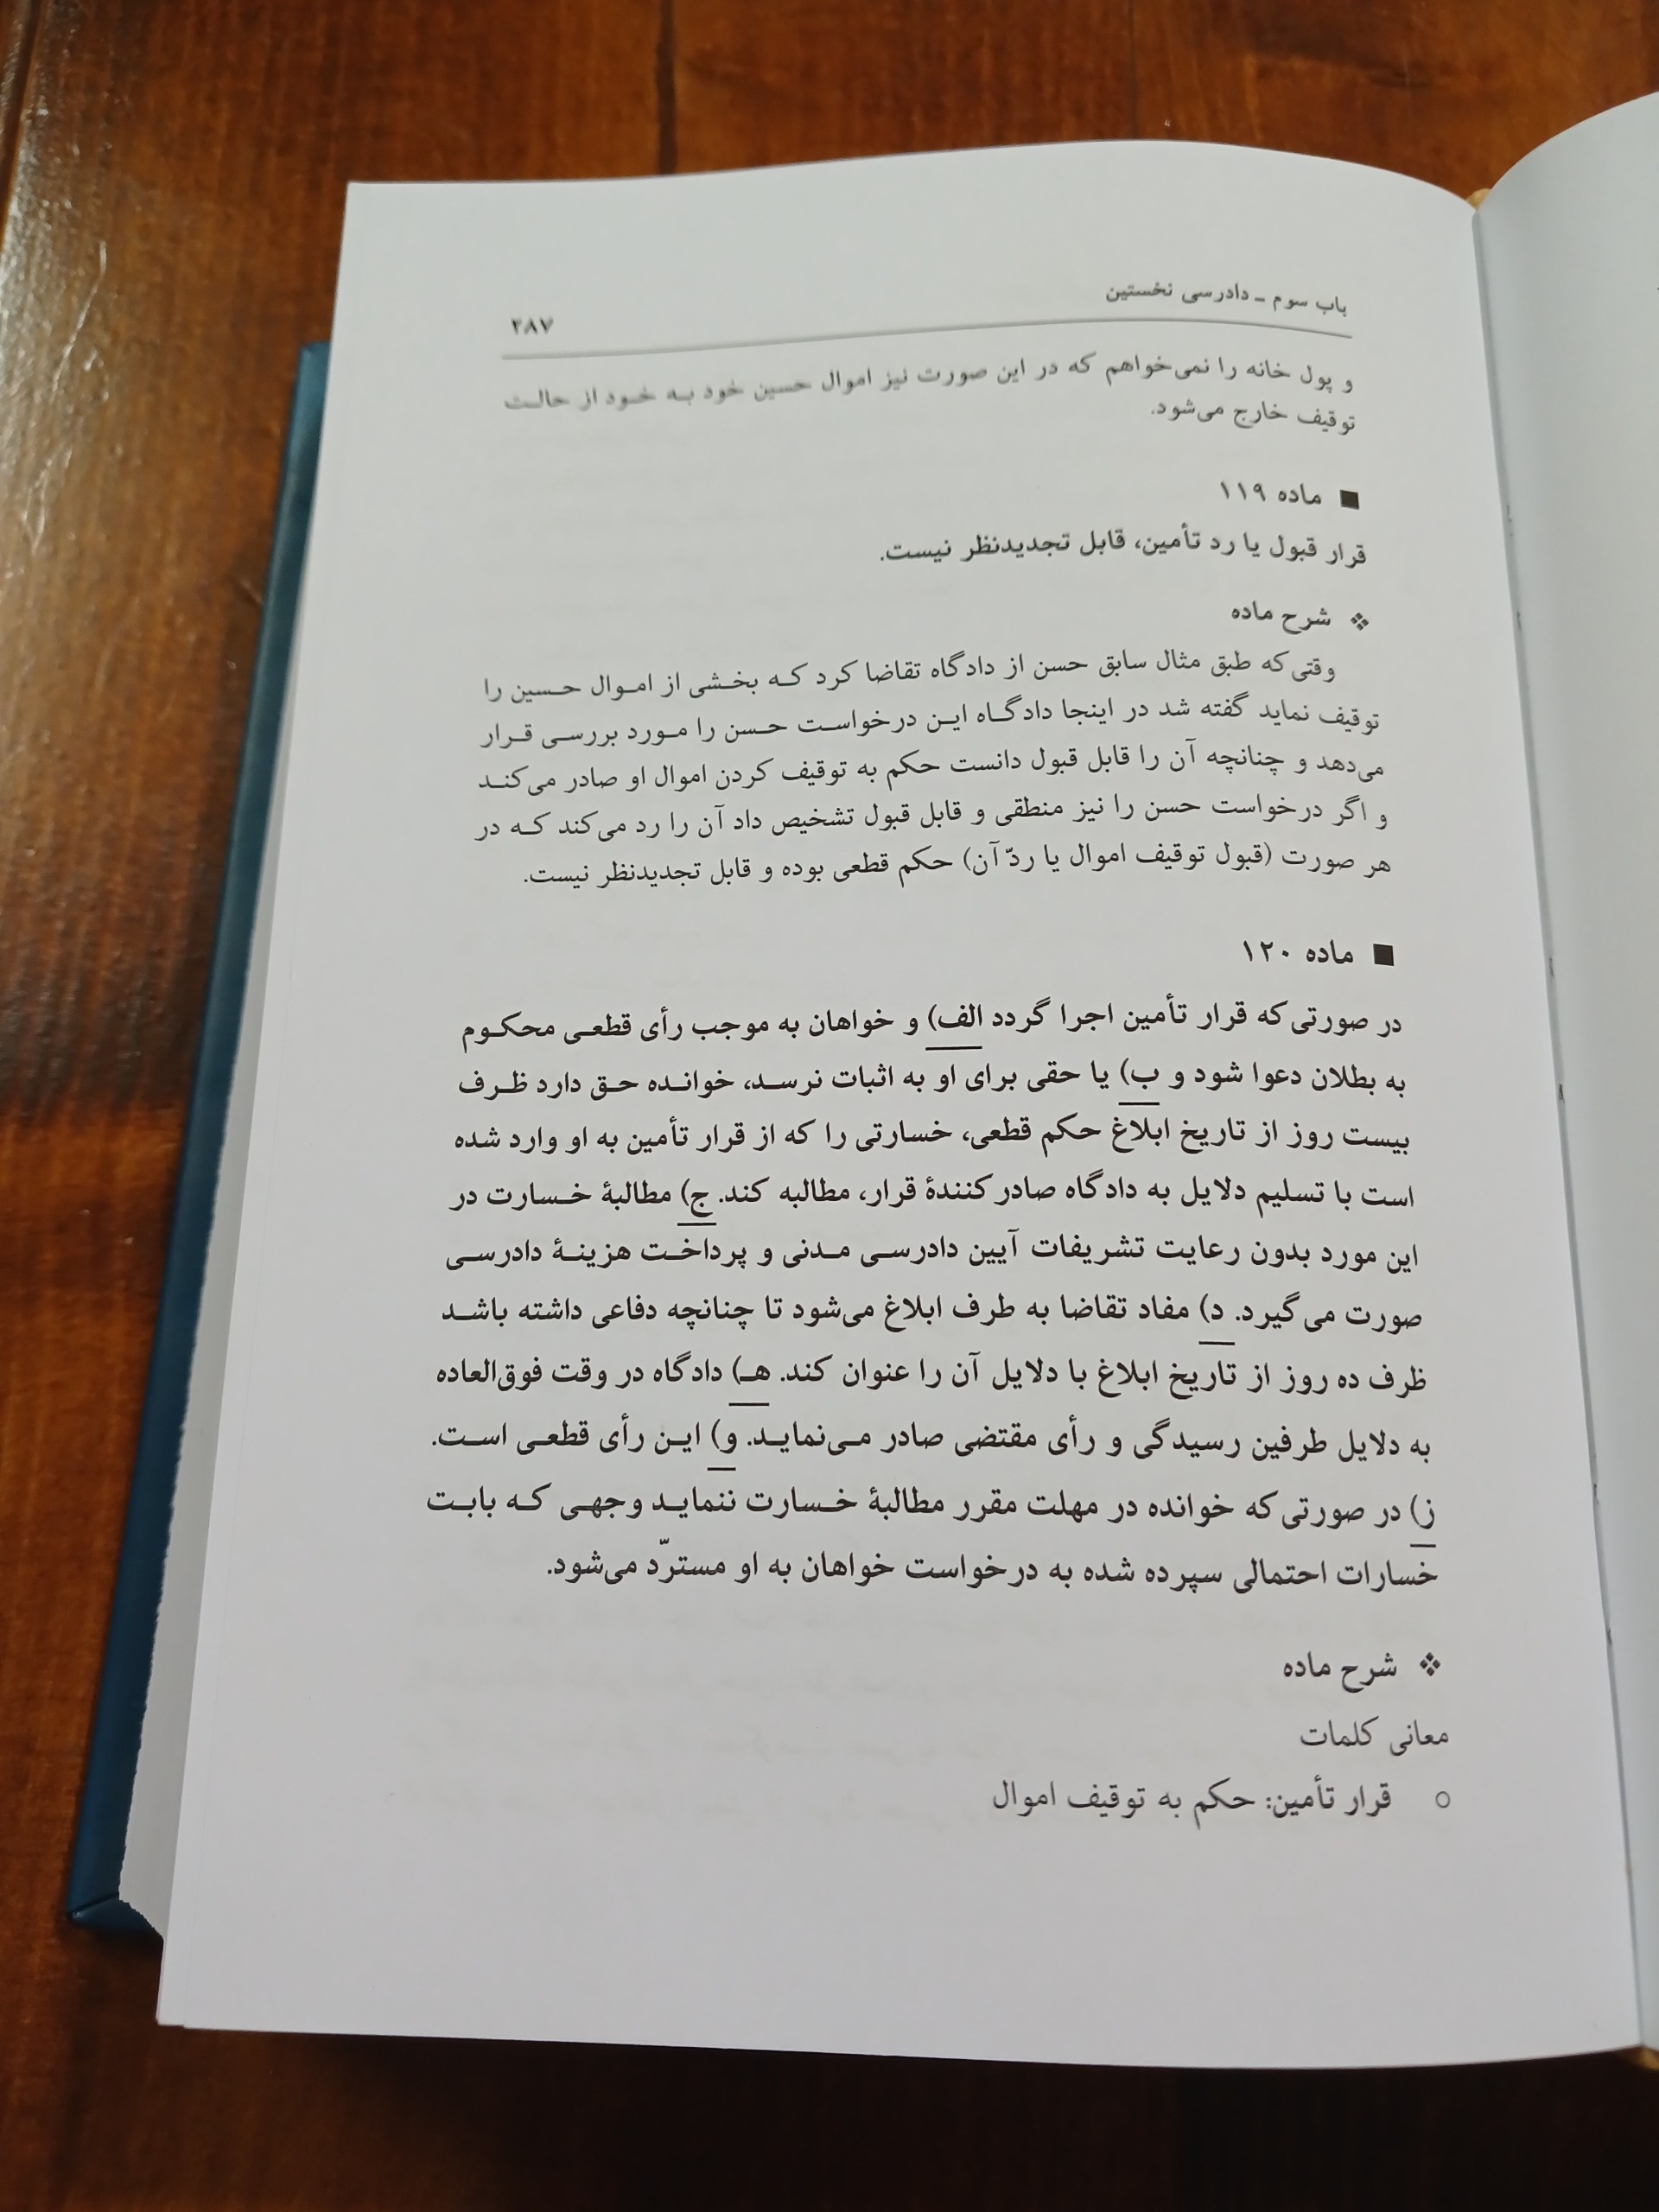 باب سوم ـ دادرسی نخستین
۲۸۷
و پول خانه را نمی‌خواهم که در این صورت نیز اموال حسین خود به خود از حالت
توقیف خارج می‌شود.
■ ماده ۱۱۹
قرار قبول یا رد تأمین، قابل تجدیدنظر نیست.
❖ شرح ماده
وقتی‌که طبق مثال سابق حسن از دادگاه تقاضا کرد که بخشی از اموال حسین را
توقیف نماید گفته شد در اینجا دادگاه این درخواست حسن را مورد بررسی قرار
می‌دهد و چنانچه آن را قابل قبول دانست حکم به توقیف کردن اموال او صادر می‌کند
و اگر درخواست حسن را نیز منطقی و قابل قبول تشخیص داد آن را رد می‌کند که در
هر صورت (قبول توقیف اموال یا ردّ آن) حکم قطعی بوده و قابل تجدیدنظر نیست.
■ ماده ۱۲۰
در صورتی‌که قرار تأمین اجرا گردد الف) و خواهان به موجب رأی قطعی محکوم
به بطلان دعوا شود و ب) یا حقی برای او به اثبات نرسد، خوانده حق دارد ظرف
بیست روز از تاریخ ابلاغ حکم قطعی، خسارتی را که از قرار تأمین به او وارد شده
است با تسلیم دلایل به دادگاه صادرکنندهٔ قرار، مطالبه کند. ج) مطالبهٔ خسارت در
این مورد بدون رعایت تشریفات آیین دادرسی مدنی و پرداخت هزینهٔ دادرسی
صورت می‌گیرد. د) مفاد تقاضا به طرف ابلاغ می‌شود تا چنانچه دفاعی داشته باشد
ظرف ده روز از تاریخ ابلاغ با دلایل آن را عنوان کند. هـ) دادگاه در وقت فوق‌العاده
به دلایل طرفین رسیدگی و رأی مقتضی صادر می‌نماید. و) این رأی قطعی است.
ز) در صورتی‌که خوانده در مهلت مقرر مطالبهٔ خسارت ننماید وجهی که بابت
خسارات احتمالی سپرده شده به درخواست خواهان به او مستردّ می‌شود.
❖ شرح ماده
معانی کلمات
○ قرار تأمین: حکم به توقیف اموال